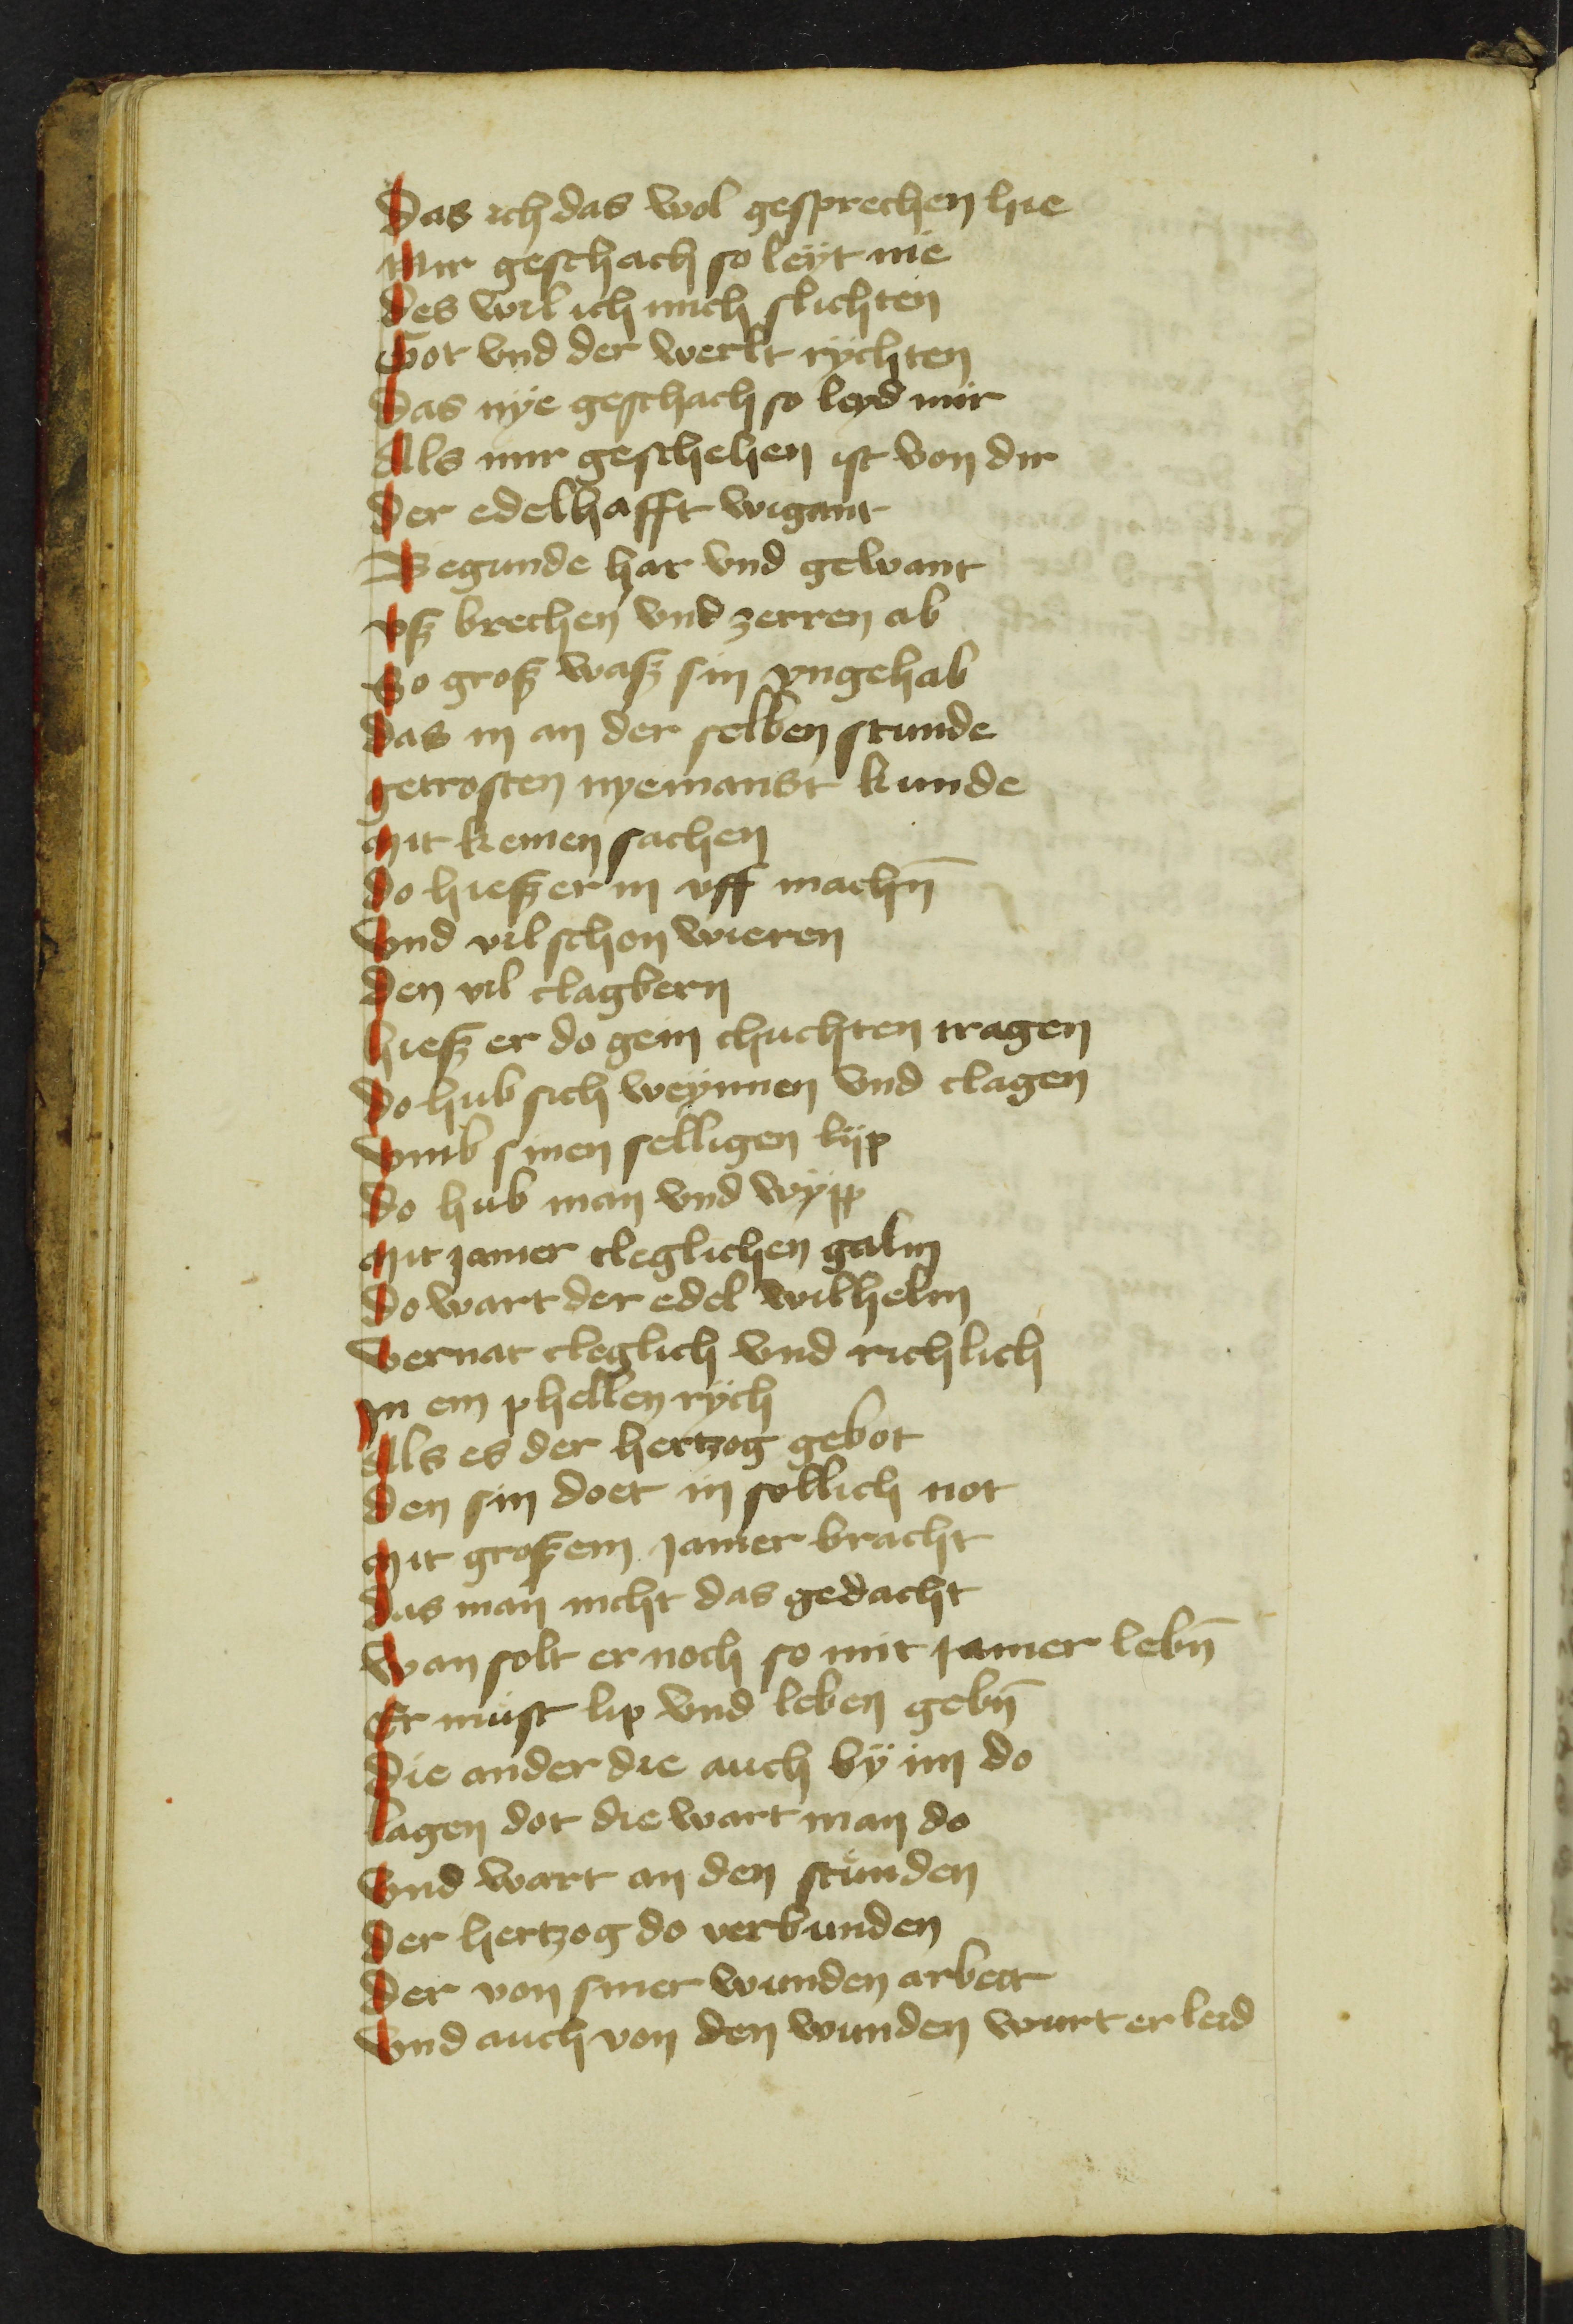 Das ich das wol gesprechen hie
Mir geschach so leyt nie
des wil ich mich slichten
Got vnd der werlt rychten
Das nye geschach so leyd mir
Als mir geschehen ist von dir
Der edelhafft wigant
Begunde har vnd gewant
vsz brechen vnd zerren ab
So grosz wasz sin vngehab
das in an der selben stunde
getrosten nyemanst kunde
Mit keinen sachen
do hiesz er in vff machn̄
vnd vil schon wieren
den vil clagbern
hiesz er do gein chuchten tragen
do hub sich weynnen vnd clagen
vmb sinen selligen lyp
do hub man vnd wypp
Mit jamer cleglichen galm
do wart der edel wilhelm
vernat cleglich vnd richlich
jn ein phellen rych
Als es der hertzog gebot
den sin doet in sollich not
Mit groszem jamer bracht
das man nicht das gedacht
wan solt er noch so mit jamer lebn̄
Er must lip vnd leben gebn̄
die ander die auch by im do
lagen dot die wart man do
vnd wart an den stunden
der hertzog do verbunden
der von siner wunden arbeit
vnd auch von den wunden wurt er leid